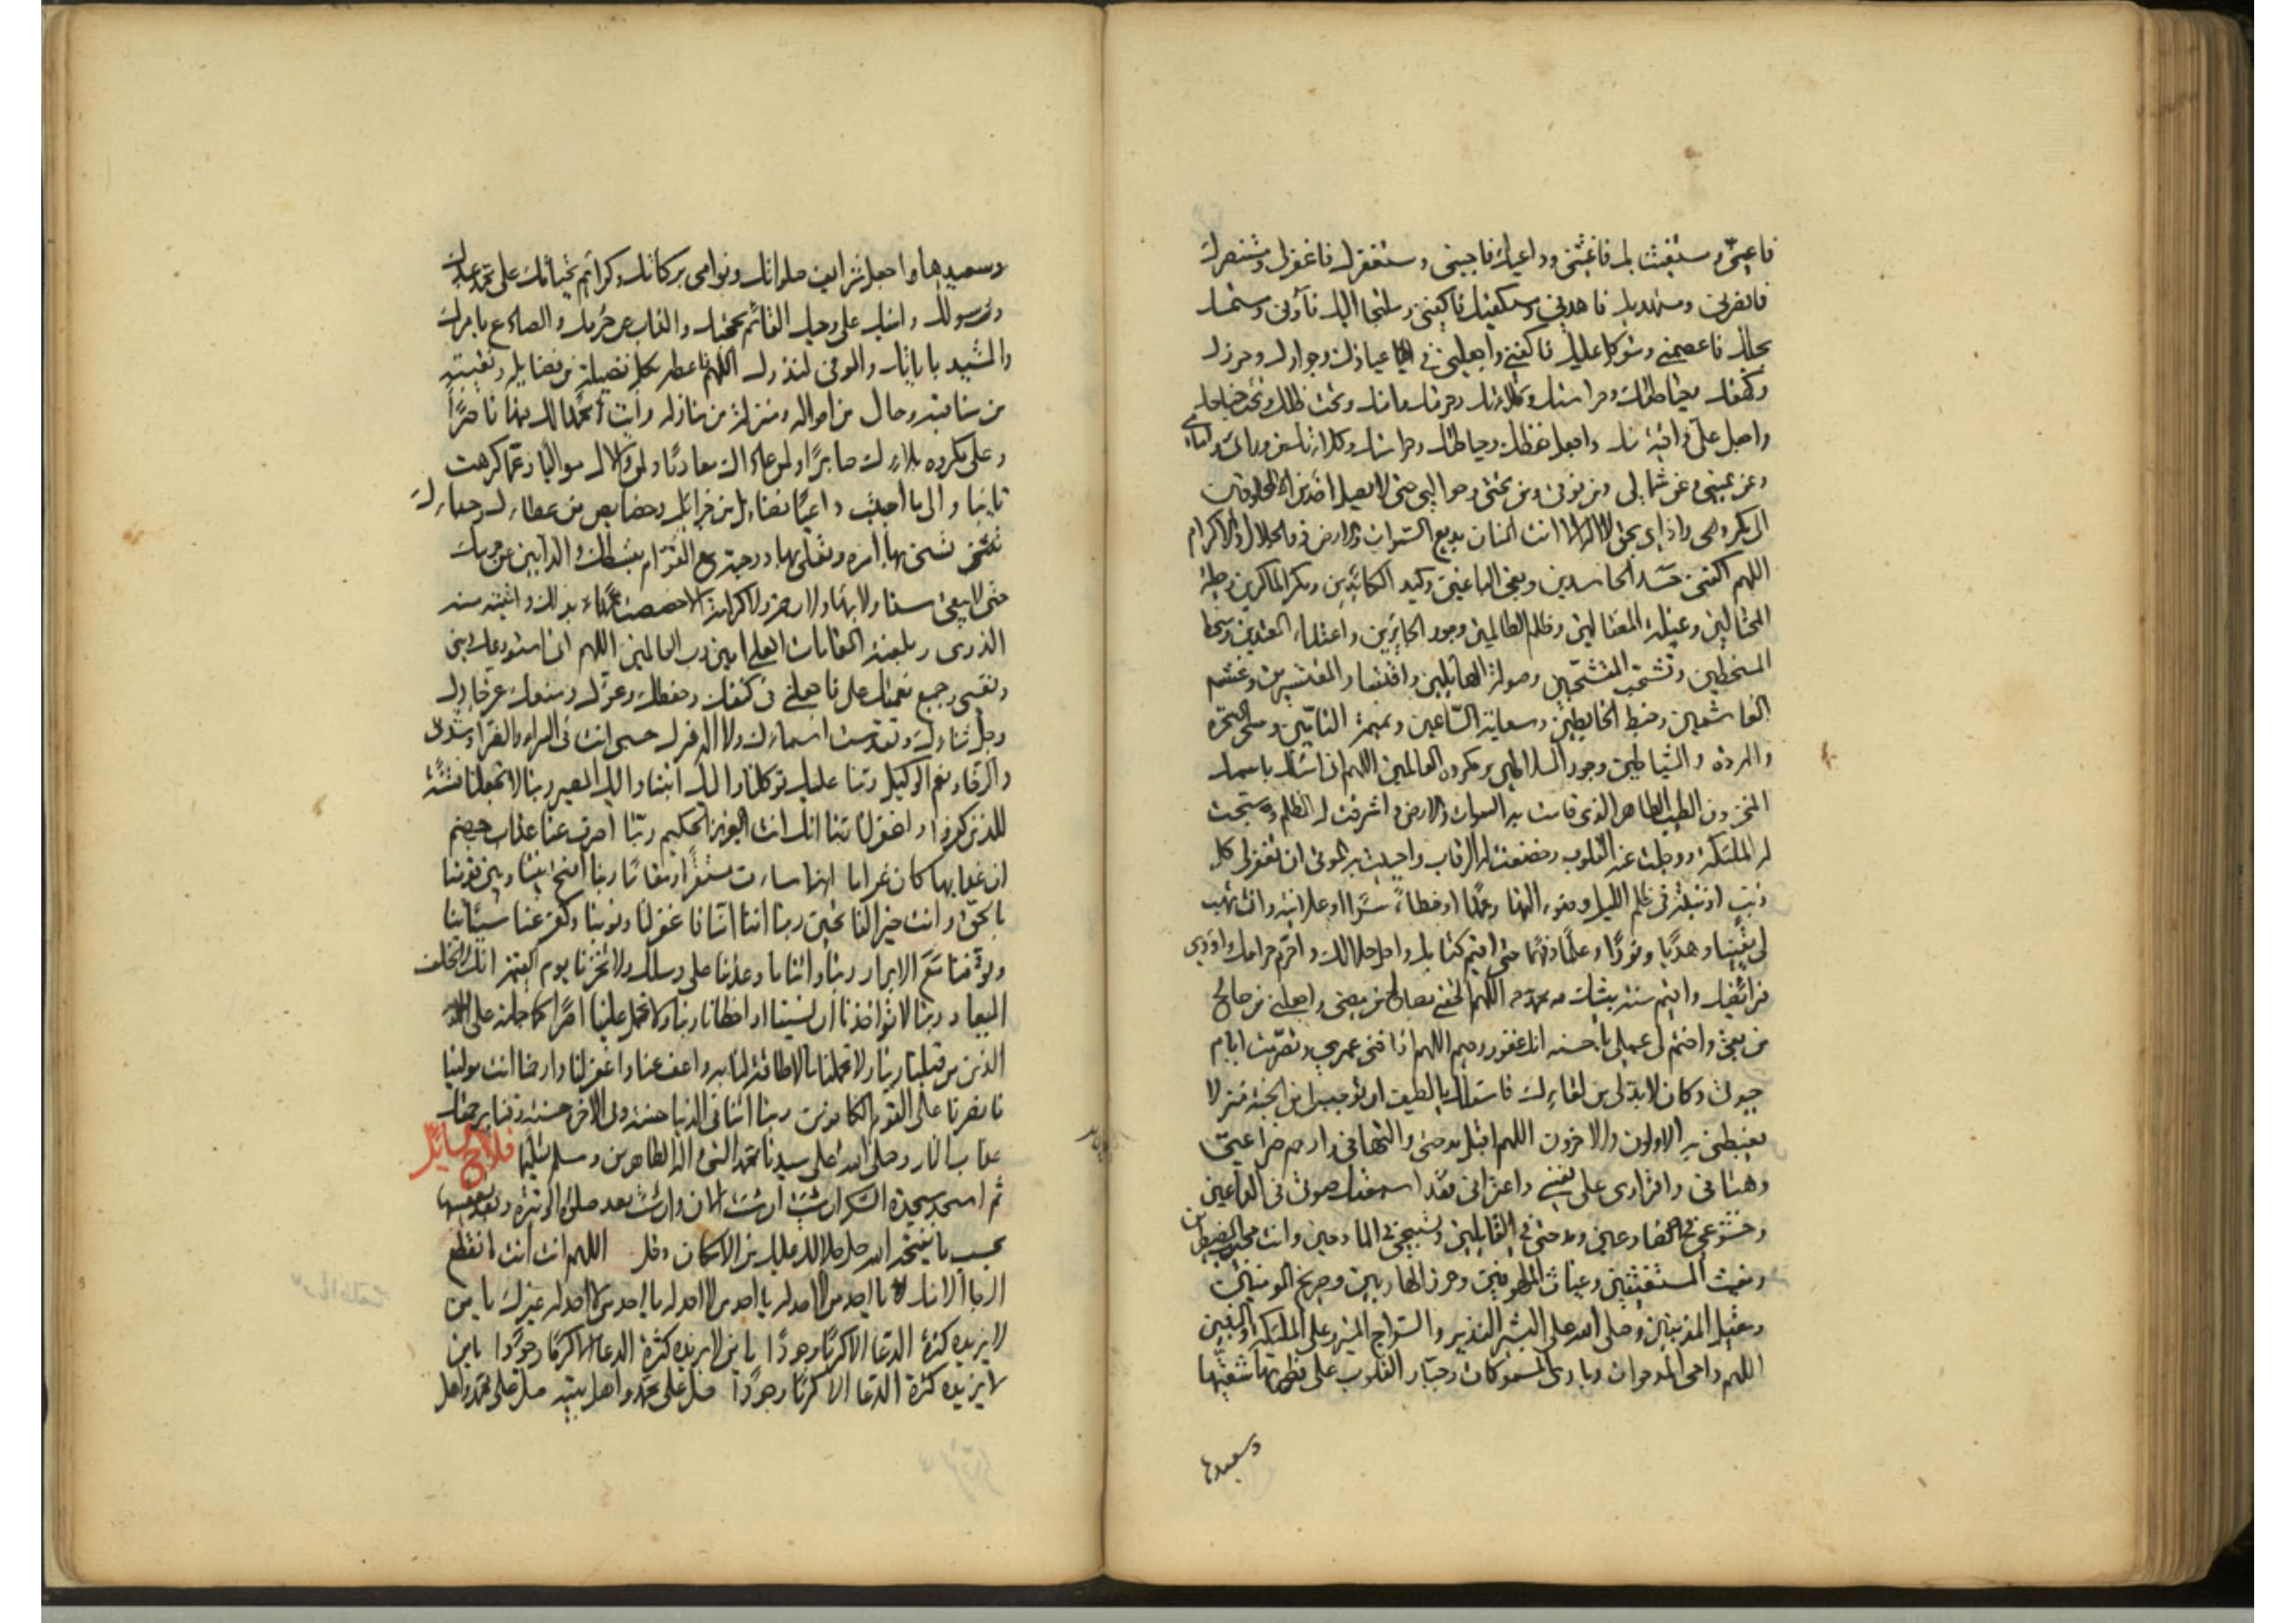 فاعنّي ومستغيث بك فاغثني وداعيك فاجبني ومستغفرك فاغفرلي ومستنصرك
فانصرني ومستهديك فاهدني ومستكفيك فاكفني وملتجأ اليك فآوني ومستمسك
بحبلك فاعصمني ومتوكل عليك فاكفني واجعلني في عياذك وجوارك وحرزك
وكهفك وحياطتك وحراستك وكلاءتك وحرمتك وامنك وتحت ظلك وتحت جناحك
واجعل عليّ واقية منك واجعل حفظك وحياطتك وحراستك وكلاءتك من ورائي وامامي
وعن يميني وعن شمالي ومن فوقي ومن تحتي وحوالي حتى لا يصل احد من المخلوقين
الى مكروهي واذاي بحق لا اله الا انت المنان بديع السموات والارض ذو الجلال والاكرام
اللهم اكفني حسد الحاسدين وبغي الباغين وكيد الكائدين ومكر الماكرين وحيلة
المحتالين وغيلة المغتالين وظلم الظالمين وجور الجائرين واعتداء المعتدين وسخط
المسخطين وتشحب المتشحبين وصولة الصايلين واقتسار المقتسرين وغشم
الغاشمين وخبط الخابطين وسعاية الساعين ونميمة النامين وسحر السحرة
والمردة والشياطين وجور السلاطين ومكروه العالمين اللهم اني اسئلك باسمك
المخزون الطيب الطاهر الذي قامت به السموات والارض واشرقت له الظلم وسبحت
له الملئكة ووجلت عنه القلوب وخضعت له الرقاب واحييت به الموتى ان تغفر لي كل
ذنب اذنبته في ظلم الليل وضوء النهار عمدا او خطاء سرا او علانية وان تهب
لي يقينا وهديا ونورا وعلما وفهما حتى اقيم كتابك واحل حلالك واحرم حرامك واؤدي
فرائضك واقيم سنة نبيك محمد اللهم الحقني بصالح من مضى واجعلني من صالح
من بقي واختم لي عملي باحسنه انك غفور رحيم اللهم اذا فنى عمري وتصرمت ايام
حيوتي وكان لابد لي من لقائك فاسئلك يا لطيف ان توجب لي من الجنة منزلا
يغبطني به الاولون والاخرون اللهم اقبل مدحتي والتهافي وارحم ضراعتي
وهتافي واقراري على نفسي واعترافي فقد اسمعتك صوتي في الداعين
وخشوعي في الضارعين ومدحتي في القائلين وتسبيحي في المادحين وانت مجيب المضطرين
ومغيث المستغيثين وغياث الملهوفين وحرز الهاربين وصريخ المومنين
ومقيل المذنبين وصلى الله على البشير النذير والسراج المنير وعلى الملئكة والنبيين
اللهم داحي المدحوات وبارئ المسموكات وجبار القلوب على فطرتها شقيها
وسعيدها
وسعيدها واجعل شرايف صلواتك ونوامي بركاتك وكرائم تحياتك على محمد عبدك
ورسولك وامينك على وحيك القائم بحجتك والذاب عن حرمك والصادع بامرك
والمشيد باياتك والموفي لنذرك اللهم فاعطه بكل فضيلة من فضايله ونقيبة
من مناقبه وحال من احواله ومنزلة من منازله رايت محمدا لك فيها ناصرا
وعلى مكروه بلائك صابرا ولمن عاداك معاديا ولمن والاك مواليا وعما كرهت
نائيا والى ما احببت داعيا فضايل من جزائك وخصايص من عطائك وحبائك
تسني بها امره وتعلي بها درجته مع القوام بقسطك والذابين عن حرمك
حتى لا يبقى سناء ولا بهاء ولا رحمة ولا كرامة الا خصصت محمدا بذلك واتيته منه
الذرى وبلغته المقامات العلى امين رب العالمين اللهم اني استودعك ديني
ونفسي وجميع نعمتك علي فاجعلني في كنفك وحفظك وعزك ومنعك عز جارك
وجل ثناؤك وتقدست اسماؤك ولا اله غيرك حسبي انت في السراء والضراء والشدة
والرخاء ونعم الوكيل ربنا عليك توكلنا واليك انبنا واليك المصير ربنا لا تجعلنا فتنة
للذين كفروا واغفر لنا ربنا انك انت العزيز الحكيم ربنا اصرف عنا عذاب جهنم
ان عذابها كان غراما انها ساءت مستقرا ومقاما ربنا افتح بيننا وبين قومنا
بالحق وانت خير الفاتحين ربنا اننا امنا فاغفر لنا ذنوبنا وكفر عنا سيئاتنا
وتوفنا مع الابرار ربنا واتنا ما وعدتنا على رسلك ولا تخزنا يوم القيمة انك لا تخلف
الميعاد ربنا لا تؤاخذنا ان نسينا او اخطانا ربنا ولا تحمل علينا اصرا كما حملته على
الذين من قبلنا ربنا ولا تحملنا ما لا طاقة لنا به واعف عنا واغفر لنا وارحمنا انت مولينا
فانصرنا على القوم الكافرين ربنا اتنا في الدنيا حسنة وفي الاخرة حسنة وقنا برحمتك
عذاب النار وصلى الله على سيدنا محمد النبي واله الطاهرين وسلم تسليما فلاح السائل
ثم اسجد سجدة الشكر ان شئت الان وان شئت بعد صلوة الوتيرة وتعقيبها
بحسب ما يفتحه الله جل جلاله عليك من الامكان وقل اللهم انت انت انقطع
الرجا الا منك يا احد من لا احد له يا احد من لا احد له يا احد من لا احد له غيرك يا من
لا يزيده كثرة الدعا الا كرما وجودا يا من لا يزيده كثرة الدعا الا كرما وجودا يا من
لا يزيده كثرة الدعا الا كرما وجودا صل على محمد واهل بيته صل على محمد واهل